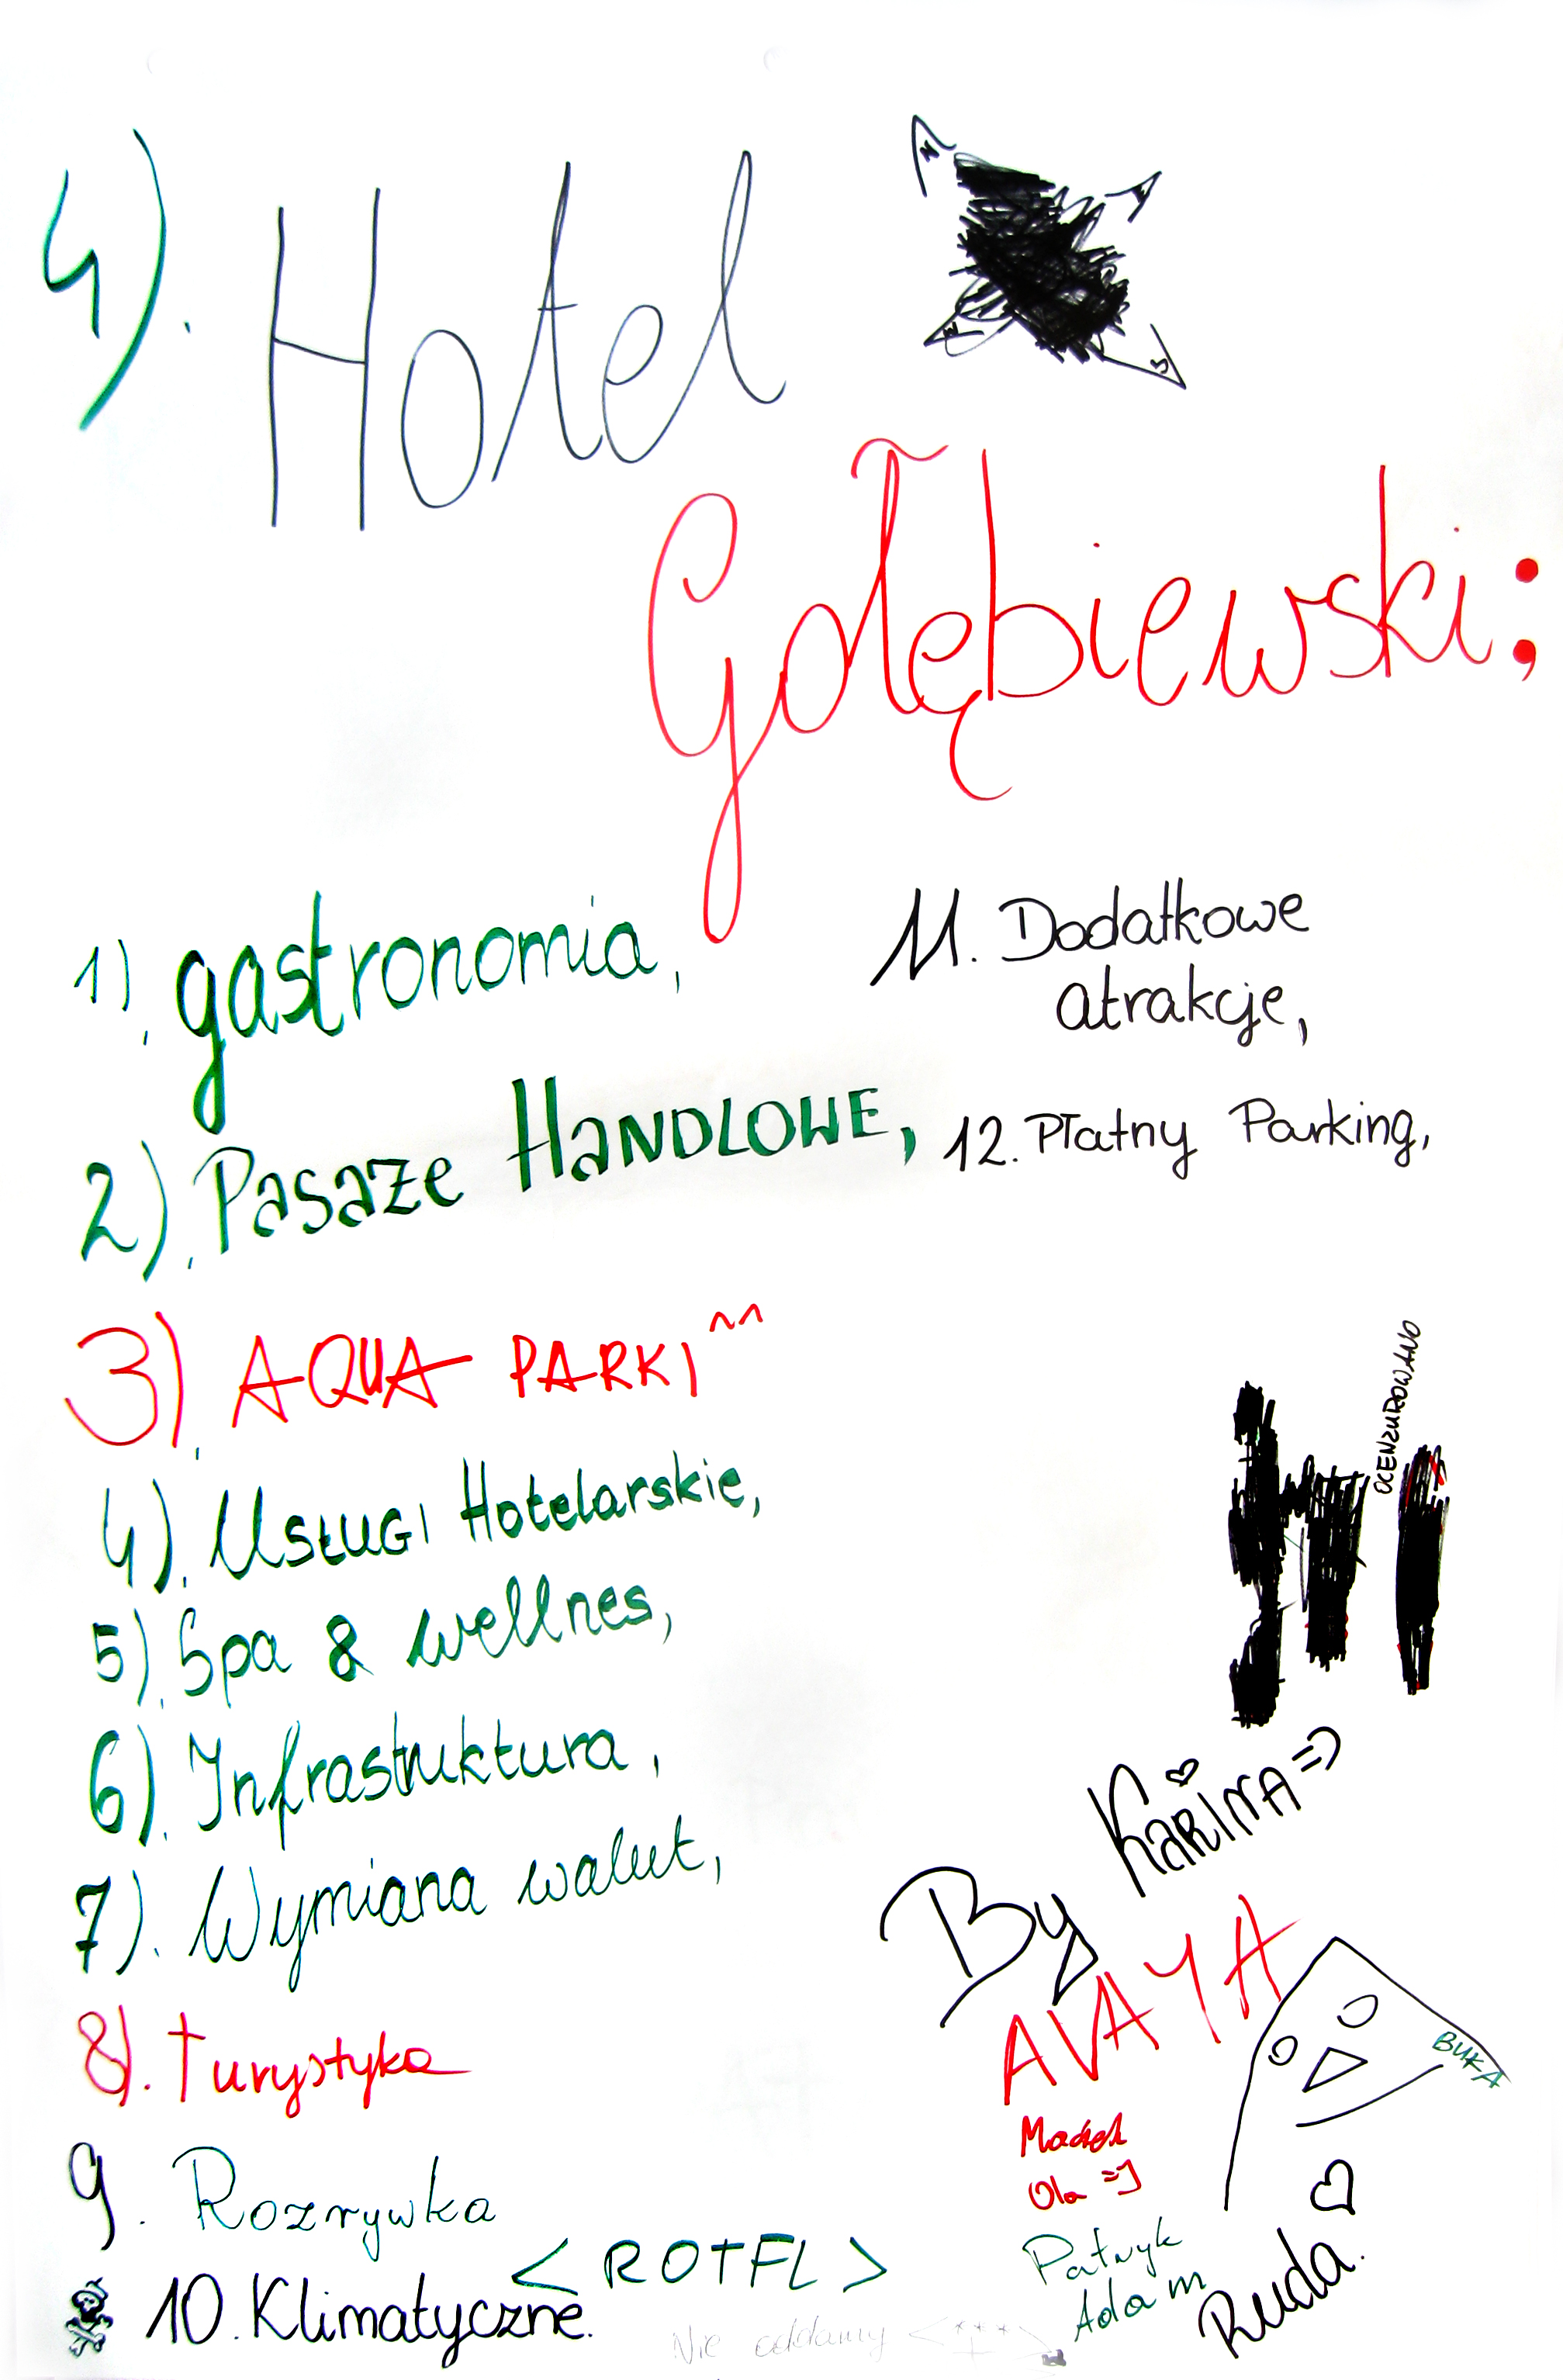 4). Hotel
Gołębiewski:
1). gastronomia,
2). Pasaże HANDLOWE,
3). AQUA PARKI ^^
4). Usługi Hotelarskie,
5). Spa & wellnes,
6). Infrastruktura,
7). Wymiana walut,
8). Turystyka
9. Rozrywka
<ROTFL>
10. Klimatyczne.
11. Dodatkowe
atrakcje,
12. Płatny Parking,
OCENZUROWANO
By KARINA =)
AVAYA
BUKA
Maciek
Ola =]
Patryk
Adam
Ruda.
Nie oddamy <***>
N
W
S